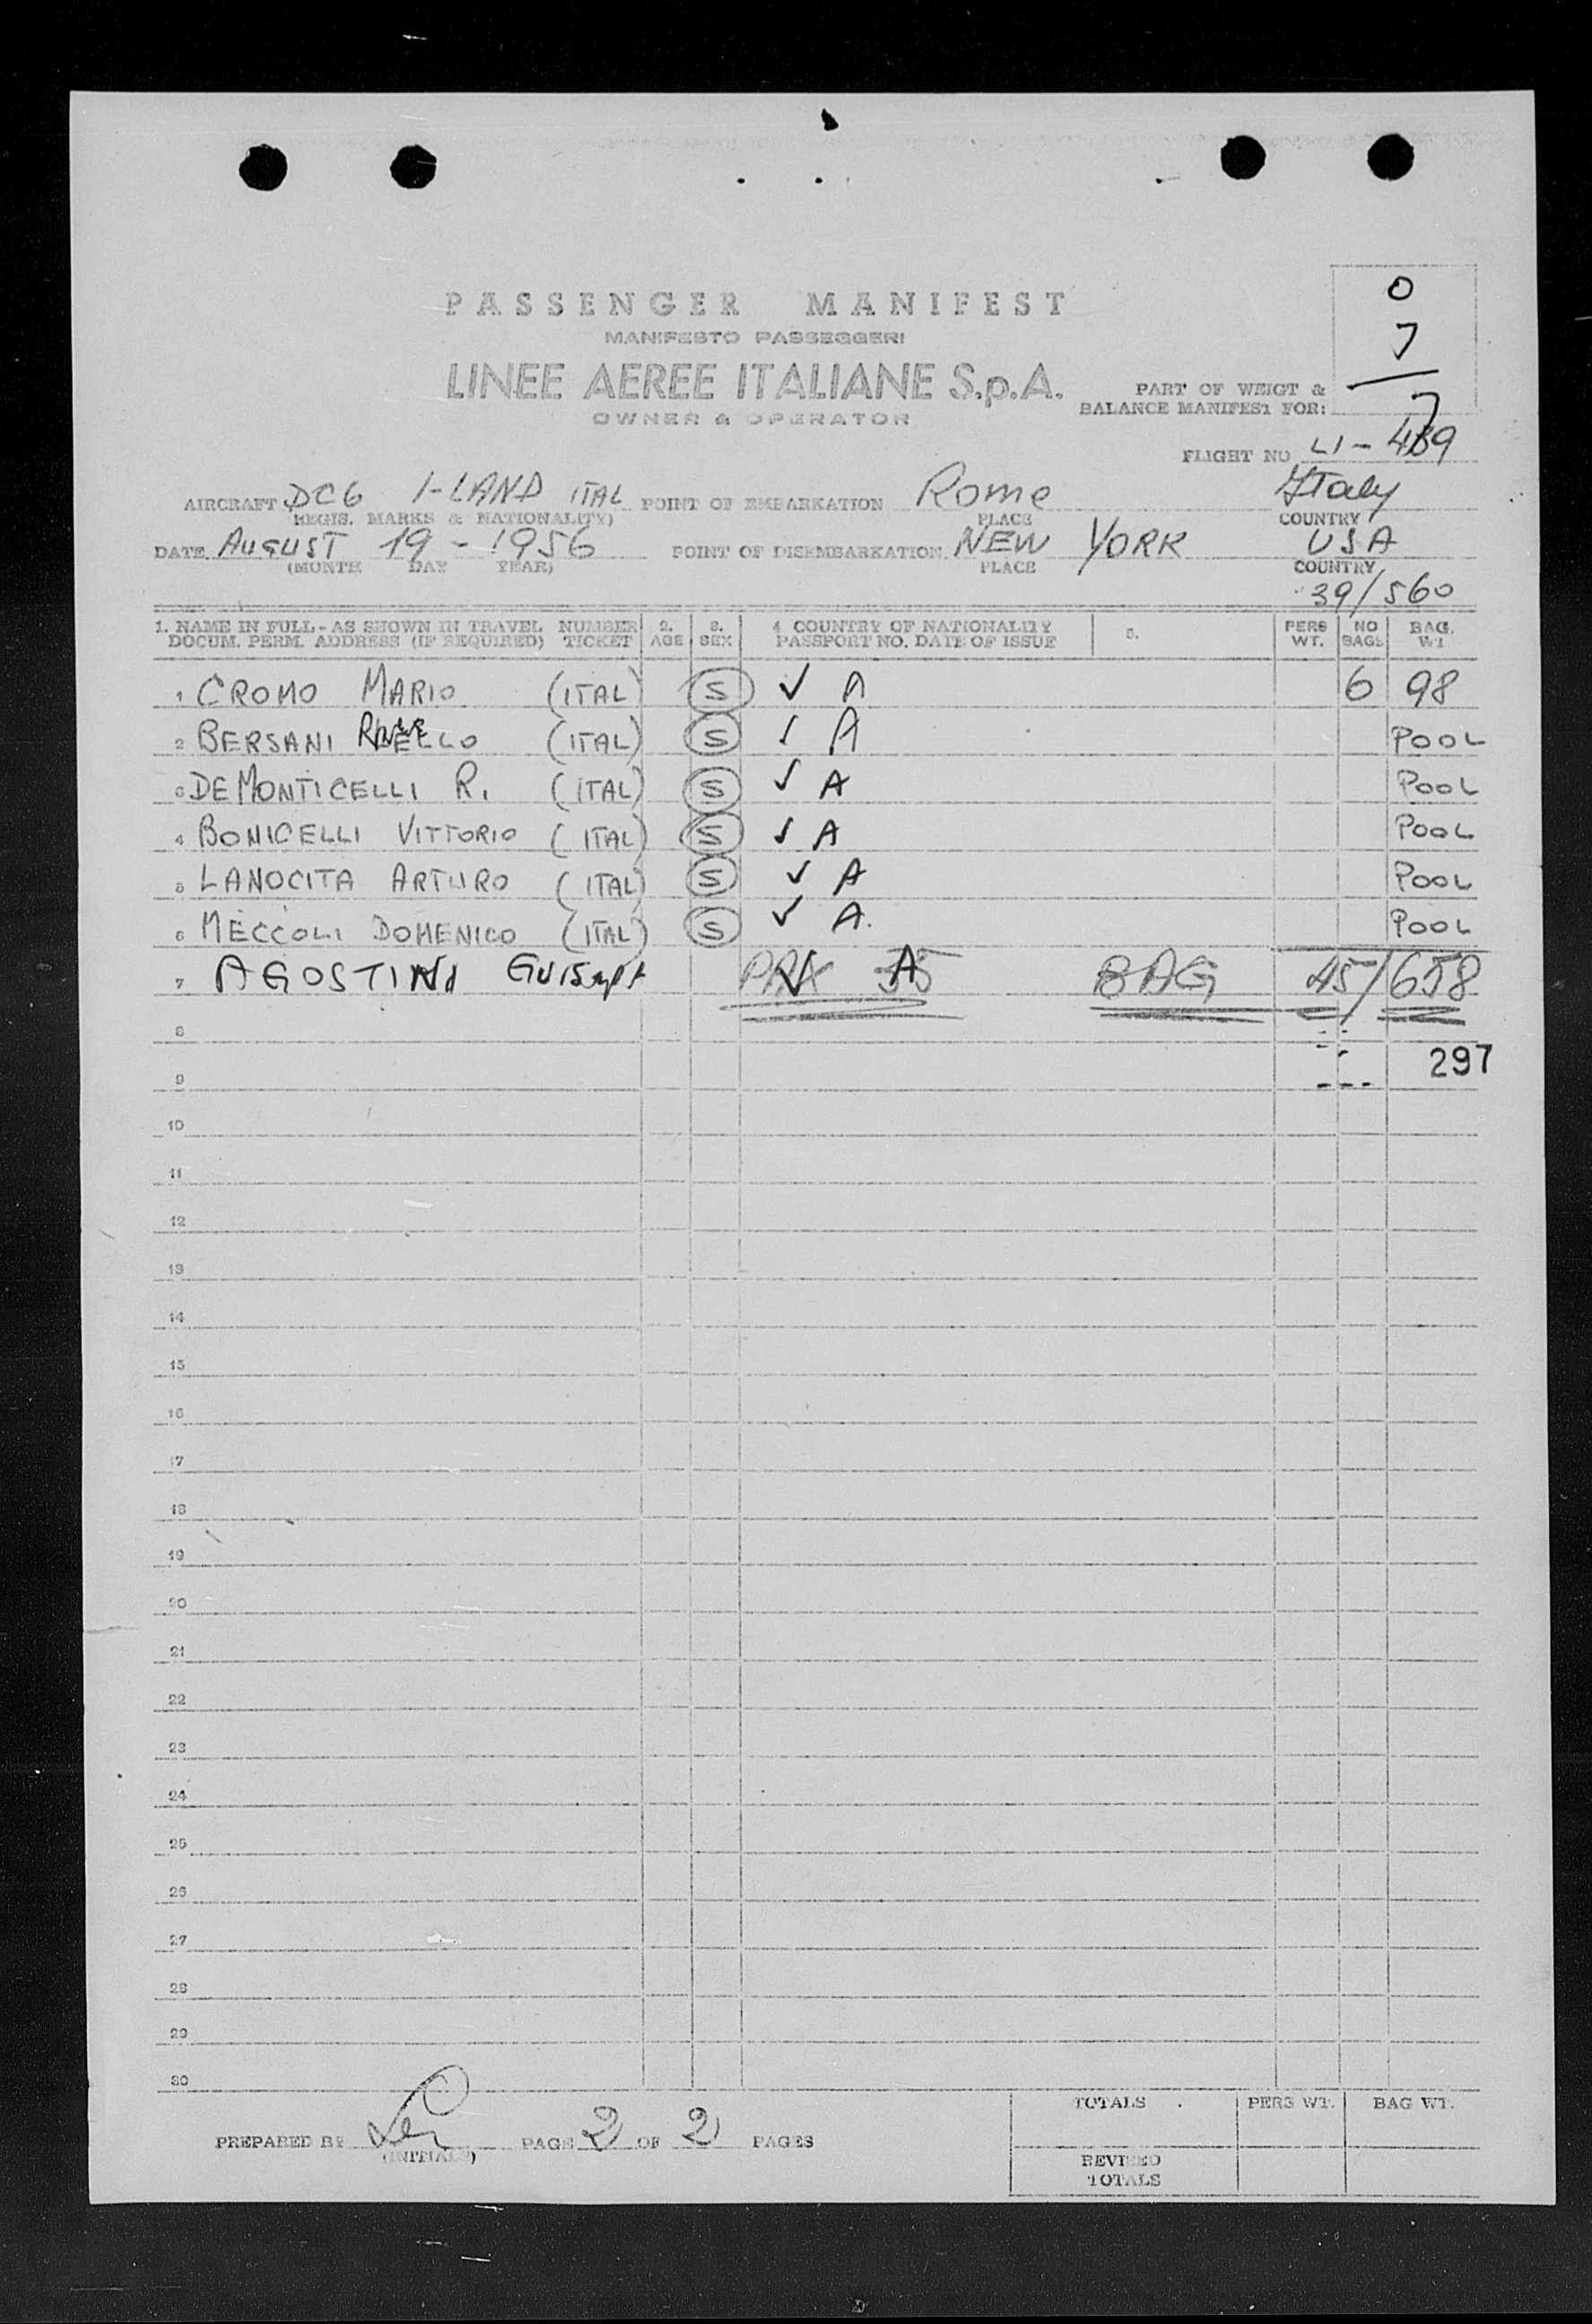 0
7
7
PASSENGER MANIFEST
MANIFESTO PASSEGGERI
LINEE AEREE ITALIANE S.p.A.
OWNER & OPERATOR
PART OF WEIGT &
BALANCE MANIFEST FOR:
FLIGHT NO LI-
AIRCRAFT DC6 I-LAND ITAL POINT OF EMBARKATION Rome Italy
REGIS. MARKS & NATIONALITY) PLACE COUNTRY
DATE AUGUST 19-1956 POINT OF DISEMBARKATION NEW YORK USA
(MONTH DAY YEAR) PLACE COUNTRY
39/560
1. NAME IN FULL - AS SHOWN IN TRAVEL NUMBER 2. 3. 4 COUNTRY OF NATIONALITY 5. PERS NO BAG.
DOCUM. PERM. ADDRESS (IF REQUIRED) TICKET AGE SEX PASSPORT NO. DATE OF ISSUE WT. BAGS WT
1 CROMO MARIO (ITAL) S ✓ A 6 98
2 BERSANI (ITAL) S ✓ A POOL
3 DEMONTICELLI R. (ITAL) S ✓ A POOL
4 BONICELLI VITTORIO (ITAL) S ✓ A POOL
5 LANOCITA ARTURO (ITAL) S ✓ A POOL
6 MECCOLI DOMENICO (ITAL) S ✓ A. POOL
7 AGOSTINI PAX A BAG 45/658
8
297
9
10
11
12
13
14
15
16
17
18
19
20
21
22
23
24
25
26
27
28
29
30
TOTALS PERS WT. BAG WT.
PREPARED BY PAGE 2 OF 2 PAGES
(INITIALS)
REVISED
TOTALS